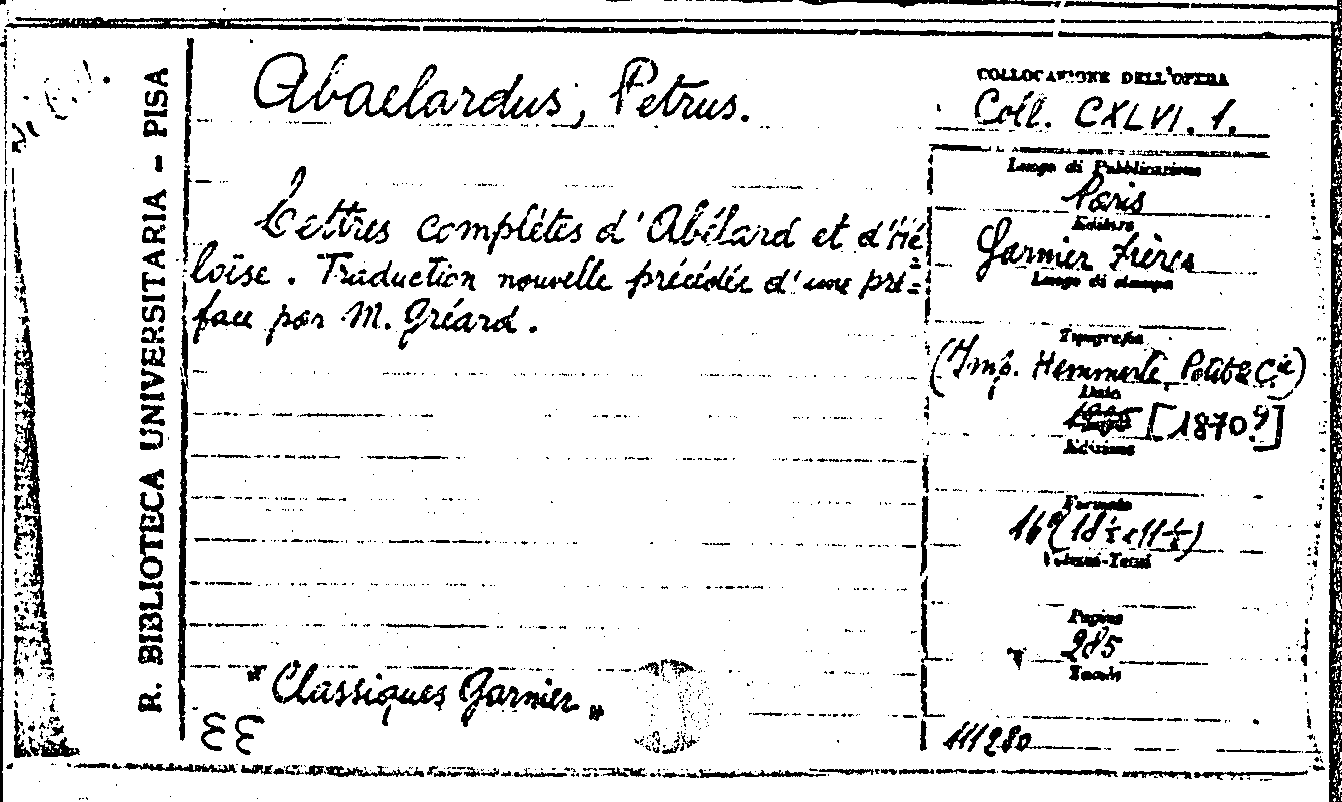 R. BIBLIOTECA UNIVERSITARIA - PISA
Abaelardus, Petrus.
Lettres complètes d'Abélard et d'Hé=
loïse. Traduction nouvelle précédée d'une pré=
face par M. Gréard.
"Classiques Garnier"
COLLOCAZIONE DELL'OPERA
Coll. CXLVI. 1.
Luogo di Pubblicazione
Paris
Editore
Garnier Frères
Luogo di stampa
Tipografia
(Imp. Hemmerlé, Petit & Cie)
Data
[1870?]
Edizione
Formato
16º (18½ x 11½)
Volumi-Tomi
Pagine
285
Tavole
111280